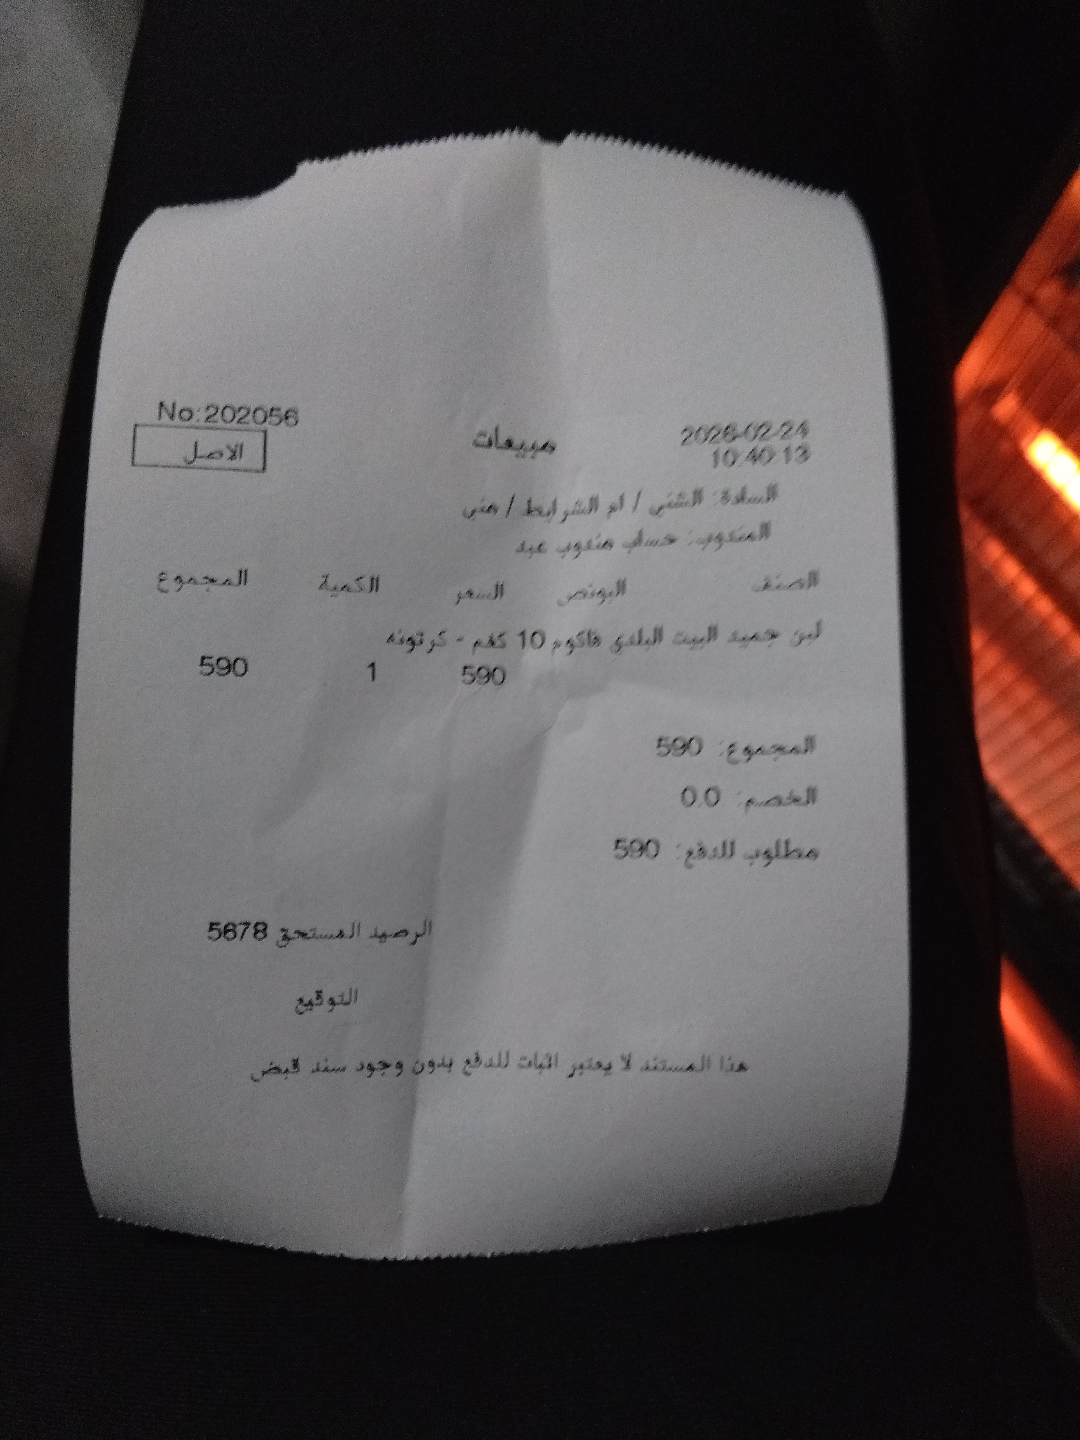 No:202056
الاصل
مبيعات
2026-02-24
10:40:13
السادة: الشني / ام الشرايط / مني
المندوب: حساب مندوب عبد
الصنف البونص السعر الكمية المجموع
لبن جميد البيت البلدي فاكوم 10 كغم - كرتونه
590 1 590
المجموع: 590
الخصم: 0.0
مطلوب للدفع: 590
الرصيد المستحق 5678
التوقيع
هذا المستند لا يعتبر اثبات للدفع بدون وجود سند قبض